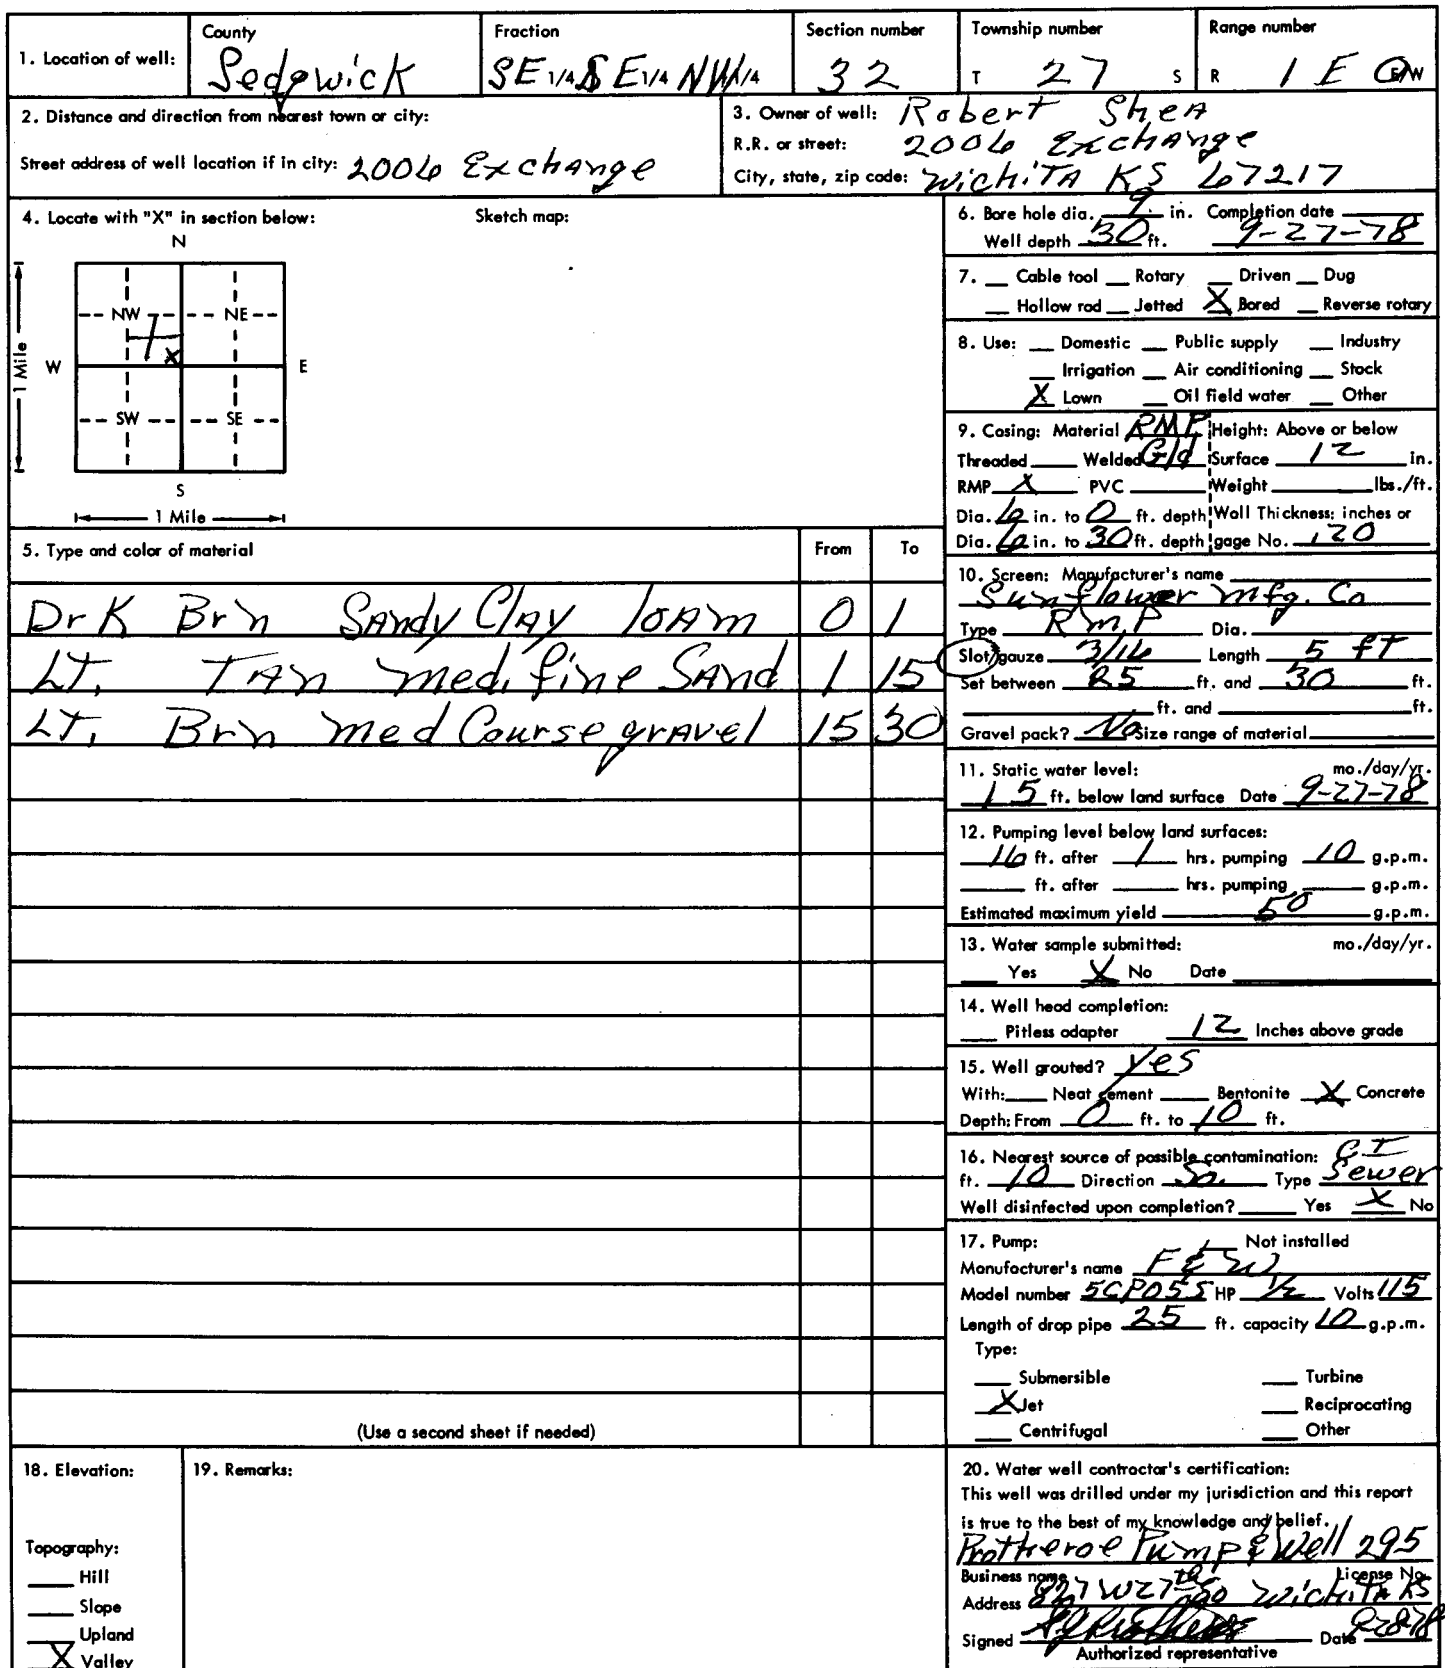 1. Location of well:
County
Sedgwick
Fraction
SE 1/4 SE 1/4 NW 1/4
Section number
32
Township number
T 27 S
Range number
R 1 E E/W
2. Distance and direction from nearest town or city:
Street address of well location if in city: 2006 Exchange
3. Owner of well: Robert Shea
R.R. or street: 2006 Exchange
City, state, zip code: Wichita KS 67217
4. Locate with "X" in section below:
Sketch map:
N
NW NE
W E
X
SW SE
S
1 Mile
1 Mile
5. Type and color of material From To
Drk Brn Sandy Clay loam 0 1
LT. TAn med. fine SAnd 1 15
LT. Brn med Course gravel 15 30
(Use a second sheet if needed)
6. Bore hole dia. 9 in. Completion date
Well depth 30 ft. 9-27-78
7. Cable tool Rotary Driven Dug
Hollow rod Jetted X Bored Reverse rotary
8. Use: Domestic Public supply Industry
Irrigation Air conditioning Stock
X Lawn Oil field water Other
9. Casing: Material RMP Height: Above or below
Threaded Welded Gld Surface 12 in.
RMP X PVC Weight lbs./ft.
Dia. 6 in. to 0 ft. depth Wall Thickness: inches or
Dia. 6 in. to 30 ft. depth gage No. .120
10. Screen: Manufacturer's name
Sunflower mfg. Co
Type Rmp Dia.
Slot/gauze 3/16 Length 5 ft
Set between 25 ft. and 30 ft.
ft. and ft.
Gravel pack? No Size range of material
11. Static water level: mo./day/yr.
15 ft. below land surface Date 9-27-78
12. Pumping level below land surfaces:
16 ft. after 1 hrs. pumping 10 g.p.m.
ft. after hrs. pumping g.p.m.
Estimated maximum yield 50 g.p.m.
13. Water sample submitted: mo./day/yr.
Yes X No Date
14. Well head completion:
Pitless adapter 12 Inches above grade
15. Well grouted? Yes
With: Neat cement Bentonite X Concrete
Depth: From 0 ft. to 10 ft.
16. Nearest source of possible contamination: CI
ft. 10 Direction So. Type Sewer
Well disinfected upon completion? Yes X No
17. Pump: Not installed
Manufacturer's name F & W
Model number 5GP05S HP 1/2 Volts 115
Length of drop pipe 25 ft. capacity 10 g.p.m.
Type:
Submersible Turbine
X Jet Reciprocating
Centrifugal Other
18. Elevation:
Topography:
Hill
Slope
Upland
X Valley
19. Remarks:
20. Water well contractor's certification:
This well was drilled under my jurisdiction and this report
is true to the best of my knowledge and belief.
Protheroe Pump & Well 295
Business name License No.
Address 827 W 27th So Wichita KS
Signed Date 9-28-78
Authorized representative